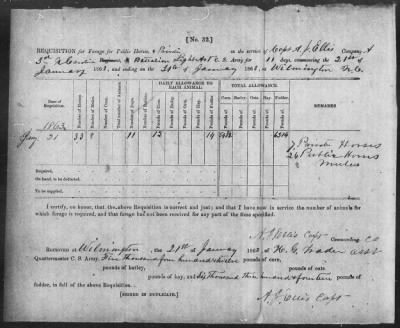 [No. 32.]
REQUISITION for Forage for Public Horses, & Private in the service of Capt A. J. Ellis Company A
3rd N. Carolina Battalion Light Art C. S. Army for 11 days, commencing the 21st of
January 1863, and ending on the 31st of January 1863, at Wilmington N. C.
Date of Requisition.
Number of Horses.
Number of Mules.
Total number of Animals.
Number of Days.
Number of Rations.
DAILY ALLOWANCE TO EACH ANIMAL.
Pounds of Corn.
Pounds of Barley.
Pounds of Oats.
Pounds of Hay.
Pounds of Fodder.
TOTAL ALLOWANCE.
Corn. Barley. Oats. Hay. Fodder.
Pounds. Pounds. Pounds. Pounds. Pounds.
REMARKS
1863
Jany 21 33 8 11 12 14 5412 6314
7 Private Horses
26 Public Horses
8 Mules
Required,
On hand, to be deducted,
To be supplied,
I certify, on honor, that the above Requisition is correct and just; and that I have now in service the number of animals for
which forage is required, and that forage has not been received for any part of the time specified.
A. J. Ellis Capt Commanding Co
RECEIVED at Wilmington, the 21st of January 1863 of H. G. Wader Asst
Quartermaster C. S. Army, Five thousand four hundred & twelve pounds of corn,
pounds of barley, pounds of oats
pounds of hay, and Six thousand three hundred & fourteen pounds of
fodder, in full of the above Requisition.
[SIGNED IN DUPLICATE.]
A. J. Ellis Capt